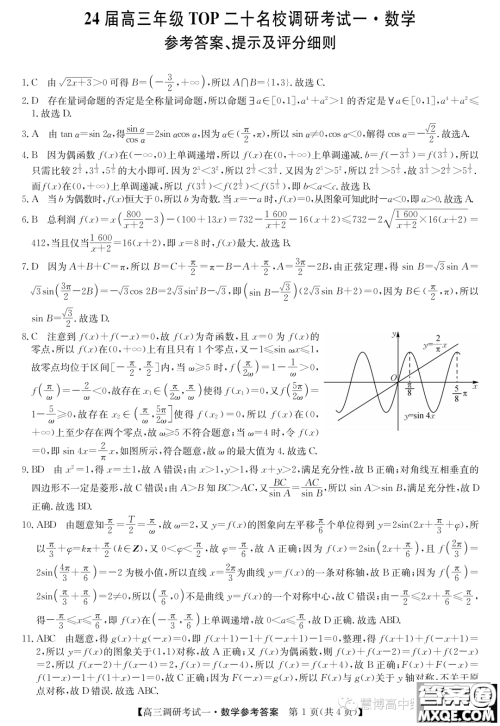 24 届高三年级 TOP 二十名校调研考试一·数学
参考答案、提示及评分细则
1. C 由 √(2x+3)>0 可得 B=(-3/2,+∞),所以 A∩B={1,3}.故选 C.
2. D 存在量词命题的否定是全称量词命题,所以命题∃a∈[0,1],a⁴+a²>1 的否定是∀a∈[0,1],a⁴+a²≤
1.故选 D.
3. A 由 tan α=sin 2α,得 sin α/cos α=2sin αcos α,因为 α∈(π/2,π),所以 sin α≠0,cos α<0,解得 cos α=-√2/2.故选 A.
4. B 因为偶函数 f(x)在(-∞,0)上单调递增,所以 f(x)在(0,+∞)上单调递减.
而 f(x)在(0,+∞)上单调递减,即 b<a<c.故选 B.
5. A 当 b 为偶数时,f(x)恒大于 0,所以 b 为奇数.当 x=-a 时,f(x)=0,从图象可知此时-a<0,即 a>0.故选 A.
6. B 总利润 f(x)=x(800/(x+2)-3)-(100+13x)=732-1 600/(x+2)-16(x+2)≤732-2√(1 600/(x+2)×16(x+2))=
412,当且仅当 1 600/(x+2)=16(x+2),即 x=8 时,f(x)最大.故选 B.
7. D 因为 A+B+C=π,所以 B=C+π/2=π-B-A+π/2,A=3π/2-2B,由正弦定理,得 sin B=√3sin A=
√3sin(3π/2-2B)=-√3cos 2B=2√3sin²B-√3,即(sin B-√3/2)(2√3sin B+2)=0,因为 B∈(π/2,π),所以
sin B=√3/2.故选 D.
8. C 注意到 f(x)+f(-x)=0,故 f(x)为奇函数,且 x=0 为 f(x)的
零点,所以 f(x)在(0,+∞)上有且只有 1 个零点,又-1≤sin ωx≤1,
故零点均位于区间[-π/2,π/2]内,当 ω≥5 时,f(π/2ω)=1-1/ω>0,
f(π/ω)=-2/ω<0,故存在 x₁∈(π/2ω,π/ω)使得 f(x₁)=0,又 f(5π/2ω)=
1-5/ω≥0,故存在 x₂∈(π/ω,5π/2ω]使得 f(x₂)=0,所以 f(x)在(0,
+∞)上至少存在两个零点,故 ω≥5 不符合题意;当 ω=4 时,令 f(x)
=0,即 sin 4x=2/π x,如图所示,符合题意,故 ω 的最大值为 4.故选 C.
y
y=2/π x
O
π/8
5/8 π
x
y=sin4x
9. BD 由 x²=1,得 x=±1,故 A 错误;由 x>1,y>1,得 x+y>2,满足充分性,故 B 正确;对角线互相垂直的
四边形不一定是菱形,故 C 错误;由 A>B 知 BC>AC,又 BC/sin A=AC/sin B,所以 sin A>sin B,满足充分性,故 D
正确.故选 BD.
10. ABD 由题意知 π/2=T/2=π/ω,故 ω=2,又 y=f(x)的图象向左平移 π/6 个单位得到 y=2sin(2x+π/3+φ),所
以 π/3+φ=kπ+π/2(k∈Z),又 0<φ<π/2,故 φ=π/6,故 A 正确;因为 f(x)=2sin(2x+π/6),且 f(2π/3)=
2sin(4π/3+π/6)=-2 为极小值,所以直线 x=2π/3 为曲线 y=f(x)的一条对称轴,故 B 正确;因为 f(π/6)=
2sin(π/3+π/6)=2≠0,所以(π/6,0)不是曲线 y=f(x)的一个对称中心,故 C 错误;由-π/2≤2x+π/6≤π/2,
得-π/3≤x≤π/6,即 f(x)在(-π/3,π/6)上单调递增,故 0<a≤π/6,故 D 正确.故选 ABD.
11. ABC 由题意,得 g(x)+g(-x)=0,即 f(x+1)-1+f(-x+1)-1=0,整理,得 f(x+1)+f(-x+1)=
2,所以 y=f(x)的图象关于(1,1)对称,故 A 正确;又 f(x)为偶函数,则 f(x)+f(-x+2)=f(x)+f(2-x)
=2,所以 f(x-2)+f(x-4)=2,f(x)=f(x-4),所以 f(x)=f(x+4),故 B 正确;F(x)+F(-x)=
f(1-x)-1+f(1+x)-1=0,故 C 正确;因为 F(-x)=g(x),所以 F(x)与 g(x)关于 y 轴对称,不关于原
点对称,故 D 错误.故选 ABC.
【高三调研考试一·数学参考答案 第 1 页(共 4 页)】
答案圈